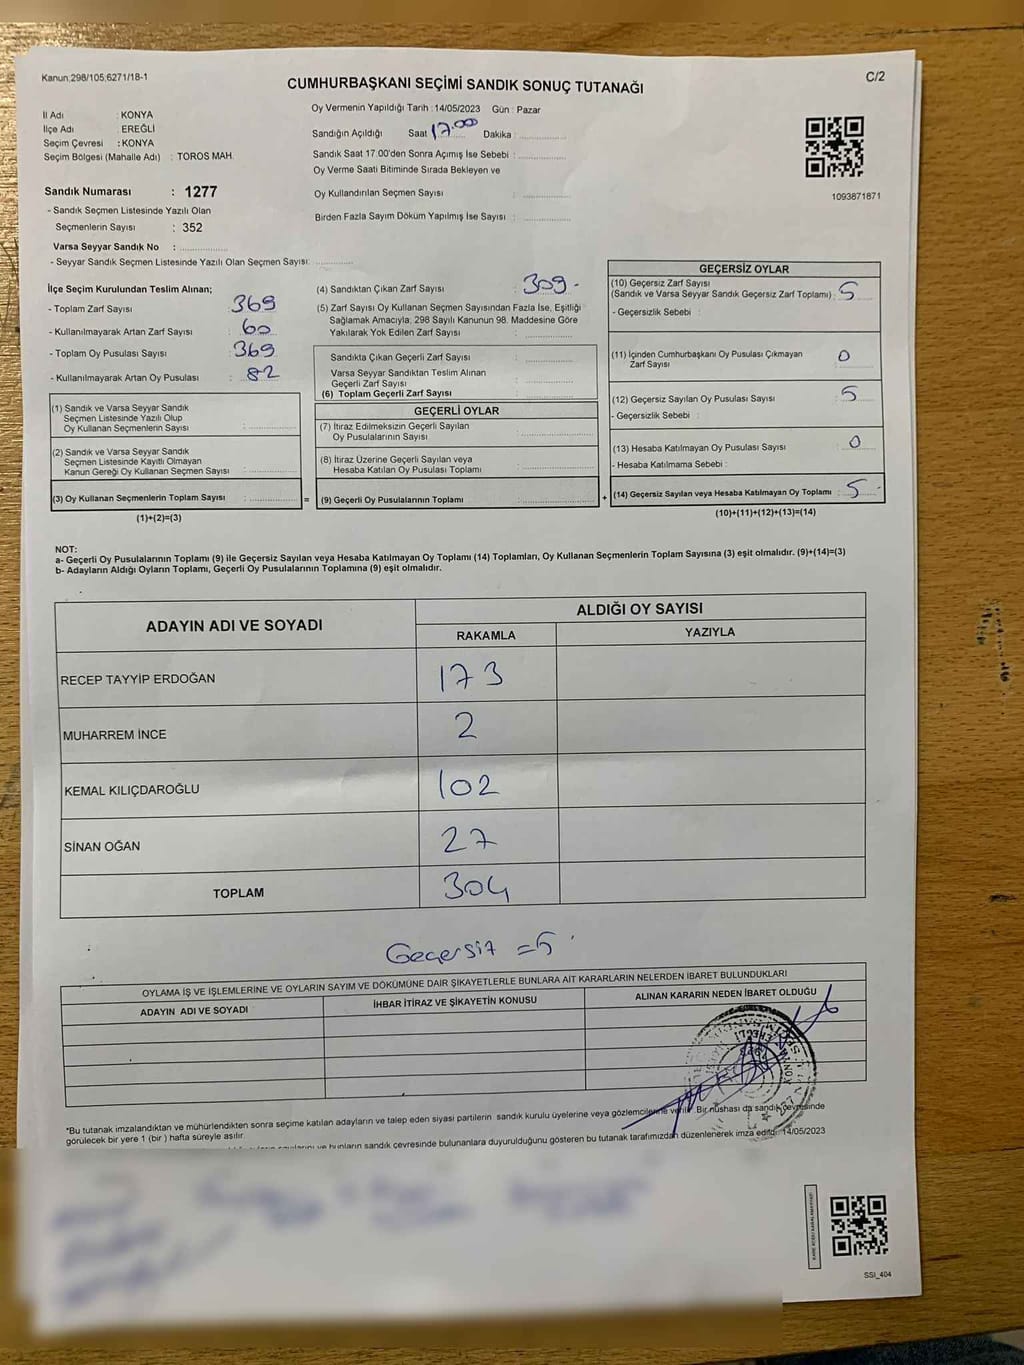 Kanun;298/105;6271/18-1
C/2
CUMHURBAŞKANI SEÇİMİ SANDIK SONUÇ TUTANAĞI
İl Adı : KONYA
İlçe Adı : EREĞLİ
Seçim Çevresi : KONYA
Seçim Bölgesi (Mahalle Adı) : TOROS MAH.
Sandık Numarası : 1277
- Sandık Seçmen Listesinde Yazılı Olan
Seçmenlerin Sayısı : 352
Varsa Seyyar Sandık No :
- Seyyar Sandık Seçmen Listesinde Yazılı Olan Seçmen Sayısı:
Oy Vermenin Yapıldığı Tarih : 14/05/2023 Gün : Pazar
Sandığın Açıldığı Saat 17.00 Dakika :
Sandık Saat 17.00'den Sonra Açımış İse Sebebi :
Oy Verme Saati Bitiminde Sırada Bekleyen ve
Oy Kullandırılan Seçmen Sayısı :
Birden Fazla Sayım Döküm Yapılmış İse Sayısı :
1093871871
İlçe Seçim Kurulundan Teslim Alınan;
- Toplam Zarf Sayısı : 369
- Kullanılmayarak Artan Zarf Sayısı : 60
- Toplam Oy Pusulası Sayısı : 369
- Kullanılmayarak Artan Oy Pusulası : 82
(1) Sandık ve Varsa Seyyar Sandık
Seçmen Listesinde Yazılı Olup
Oy Kullanan Seçmenlerin Sayısı :
(2) Sandık ve Varsa Seyyar Sandık
Seçmen Listesinde Kayıtlı Olmayan
Kanun Gereği Oy Kullanan Seçmen Sayısı :
(3) Oy Kullanan Seçmenlerin Toplam Sayısı :
(1)+(2)=(3)
(4) Sandıktan Çıkan Zarf Sayısı : 309-
(5) Zarf Sayısı Oy Kullanan Seçmen Sayısından Fazla İse, Eşitliği
Sağlamak Amacıyla; 298 Sayılı Kanunun 98. Maddesine Göre
Yakılarak Yok Edilen Zarf Sayısı :
Sandıkta Çıkan Geçerli Zarf Sayısı :
Varsa Seyyar Sandıktan Teslim Alınan
Geçerli Zarf Sayısı :
(6) Toplam Geçerli Zarf Sayısı :
GEÇERLİ OYLAR
(7) İtiraz Edilmeksizin Geçerli Sayılan
Oy Pusulalarının Sayısı :
(8) İtiraz Üzerine Geçerli Sayılan veya
Hesaba Katılan Oy Pusulası Toplamı :
= (9) Geçerli Oy Pusulalarının Toplamı :
GEÇERSİZ OYLAR
(10) Geçersiz Zarf Sayısı
(Sandık ve Varsa Seyyar Sandık Geçersiz Zarf Toplamı) : 5
- Geçersizlik Sebebi :
(11) İçinden Cumhurbaşkanı Oy Pusulası Çıkmayan
Zarf Sayısı : 0
(12) Geçersiz Sayılan Oy Pusulası Sayısı : 5
- Geçersizlik Sebebi :
(13) Hesaba Katılmayan Oy Pusulası Sayısı : 0
- Hesaba Katılmama Sebebi :
+ (14) Geçersiz Sayılan veya Hesaba Katılmayan Oy Toplamı : 5
(10)+(11)+(12)+(13)=(14)
NOT:
a- Geçerli Oy Pusulalarının Toplamı (9) ile Geçersiz Sayılan veya Hesaba Katılmayan Oy Toplamı (14) Toplamları, Oy Kullanan Seçmenlerin Toplam Sayısına (3) eşit olmalıdır. (9)+(14)=(3)
b- Adayların Aldığı Oyların Toplamı, Geçerli Oy Pusulalarının Toplamına (9) eşit olmalıdır.
ADAYIN ADI VE SOYADI ALDIĞI OY SAYISI
RAKAMLA YAZIYLA
RECEP TAYYİP ERDOĞAN 173
MUHARREM İNCE 2
KEMAL KILIÇDAROĞLU 102
SİNAN OĞAN 27
TOPLAM 304
Geçersiz = 5
OYLAMA İŞ VE İŞLEMLERİNE VE OYLARIN SAYIM VE DÖKÜMÜNE DAİR ŞİKAYETLERLE BUNLARA AİT KARARLARIN NELERDEN İBARET BULUNDUKLARI
ADAYIN ADI VE SOYADI İHBAR İTİRAZ VE ŞİKAYETİN KONUSU ALINAN KARARIN NEDEN İBARET OLDUĞU
*Bu tutanak imzalandıktan ve mühürlendikten sonra seçime katılan adayların ve talep eden siyasi partilerin sandık kurulu üyelerine veya gözlemcilerine verilir. Bir nüshası da sandık çevresinde
görülecek bir yere 1 (bir) hafta süreyle asılır.
bunların sandık çevresinde bulunanlara duyurulduğunu gösteren bu tutanak tarafımızdan düzenlenerek imza edildi. 14/05/2023
SSI_404